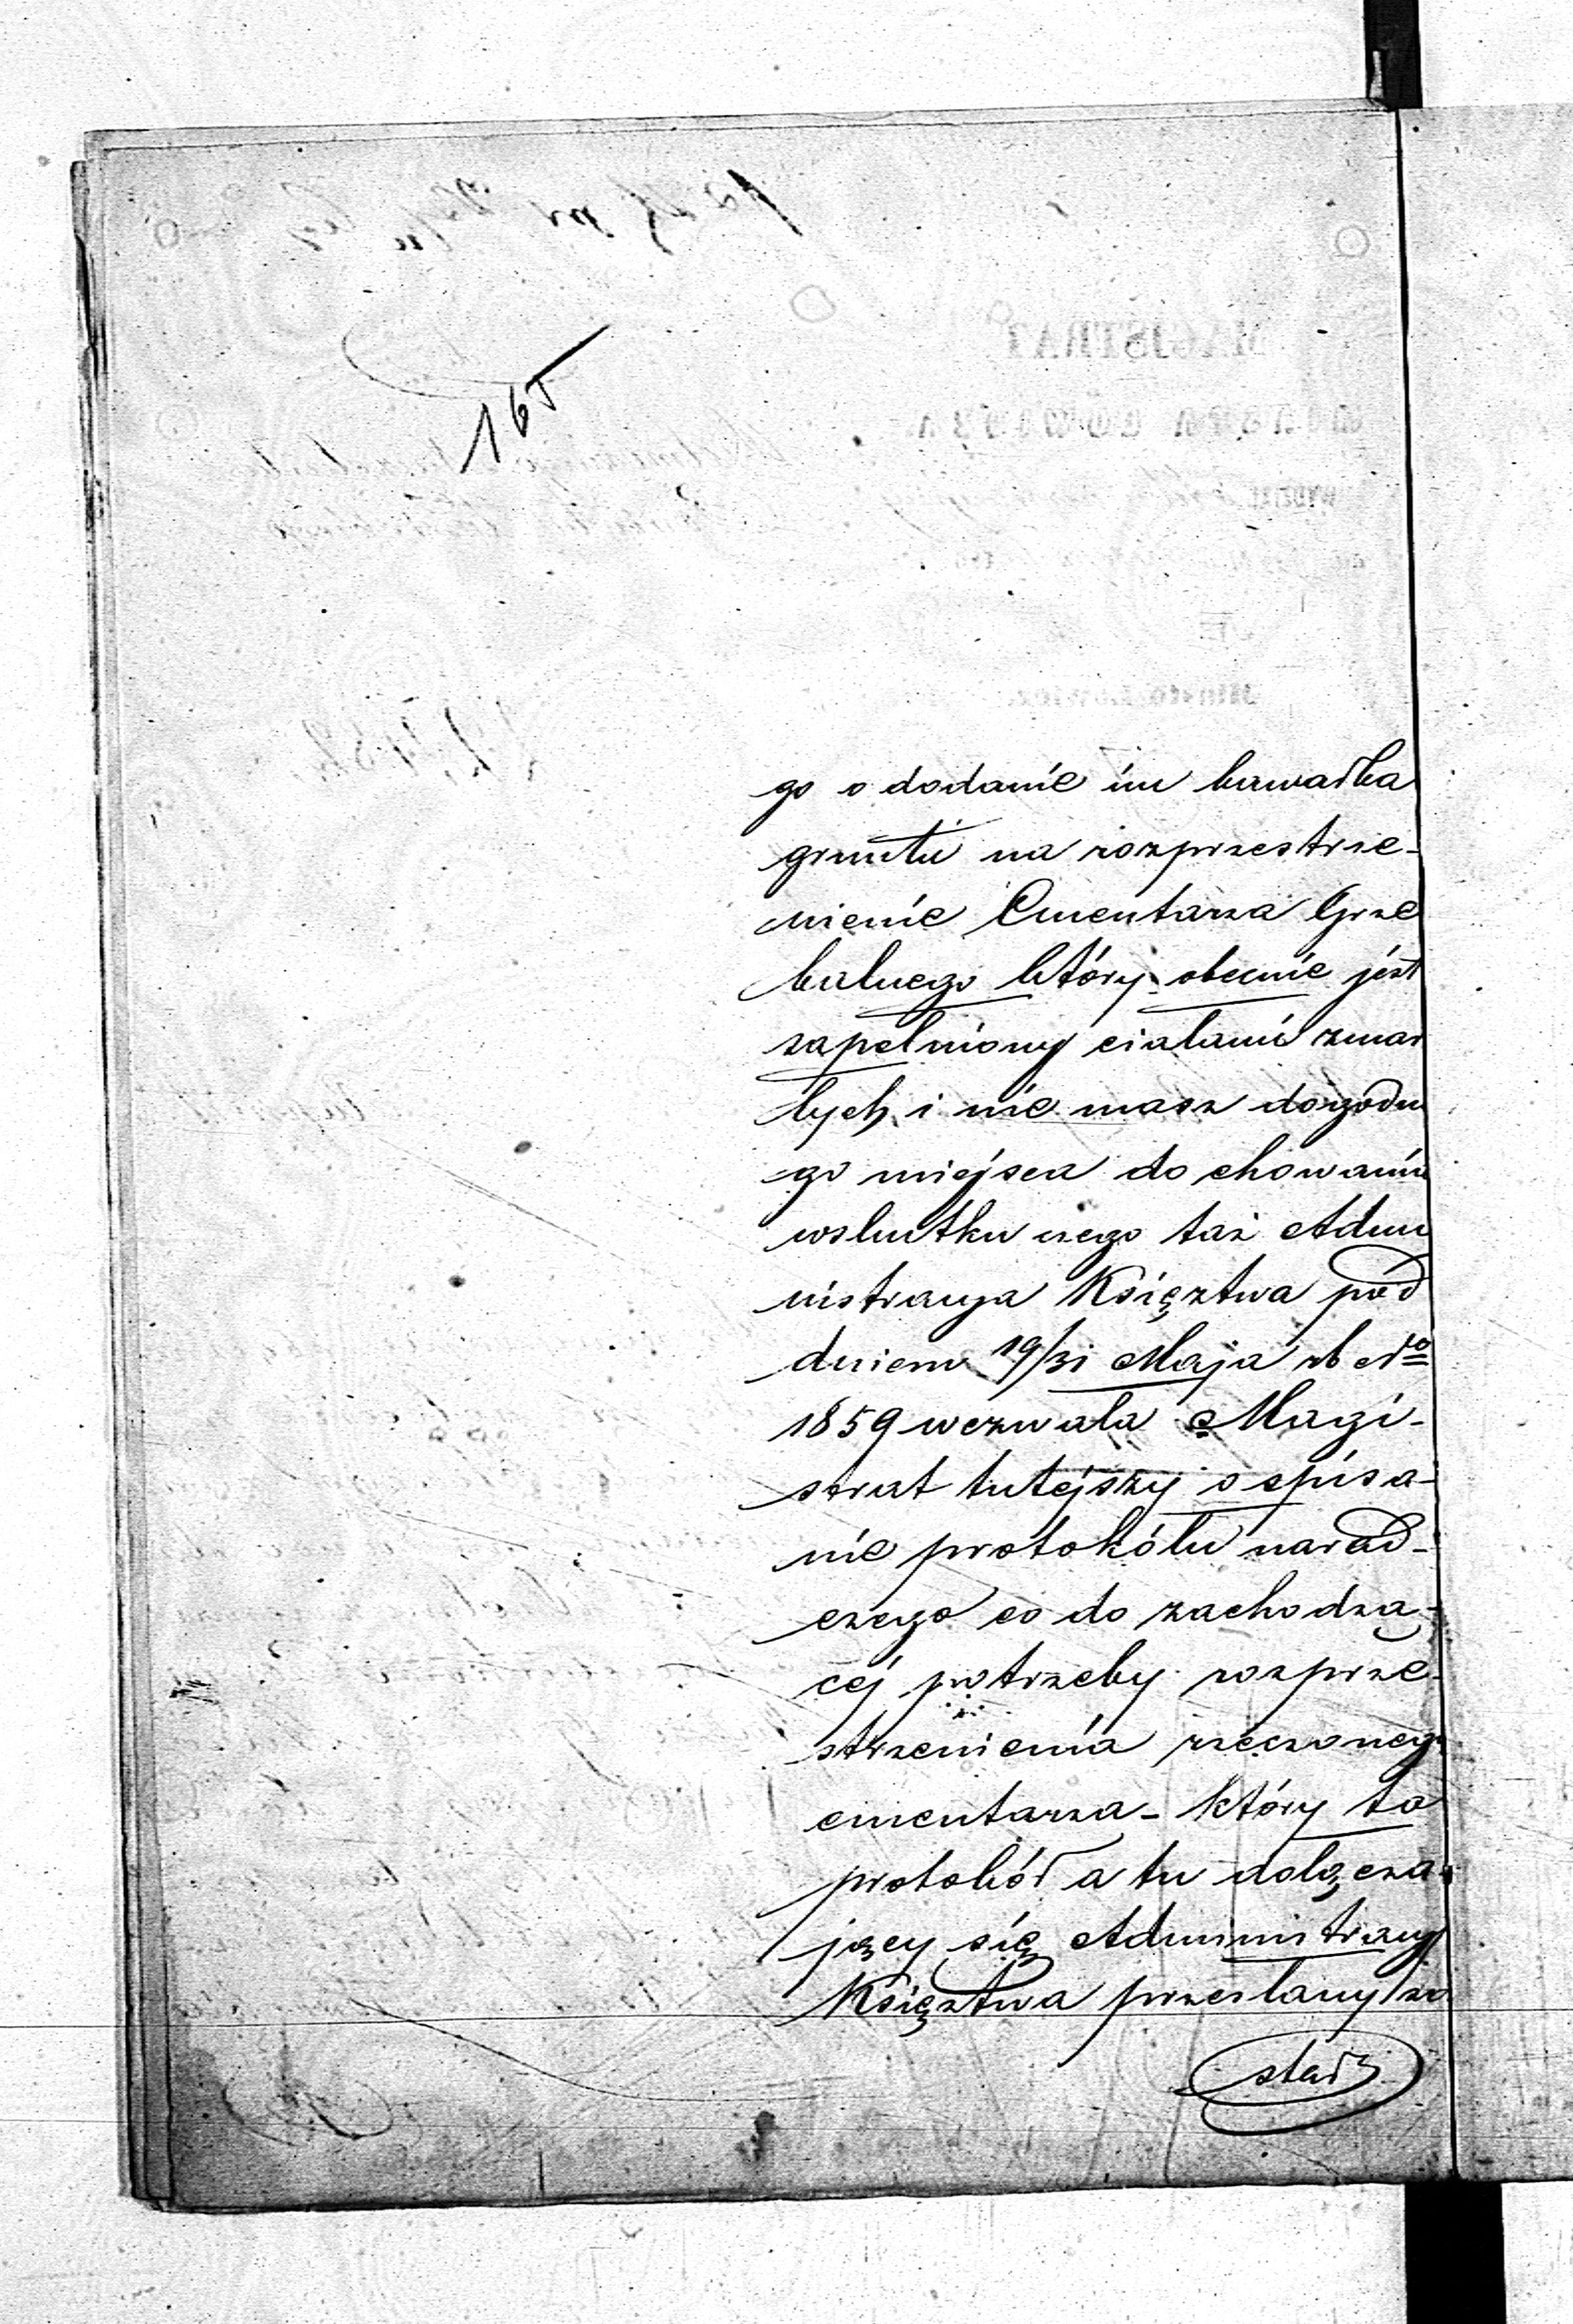 165
go o dodanie im kawałka
gruntu na rozprzestrze-
nienie Cmentarza Grze
balnego który obecnie jest
zapełniony ciałami zmar
łych i nie masz dogodne
go miejsca do chowania
wskutku czego taż Admi
nistracya Księztwa pod
dniem 19/31 Maja rb No
1859 wezwała Magi-
strat tutejszy o spisa-
nie protokółu narad-
czego co do zachodzą-
cej potrzeby rozprze-
strzenienia rzeczonego
cmentarza - który to
protokół a tu dołącza-
jący się Administracyi
Księztwa przesłany zo
stał